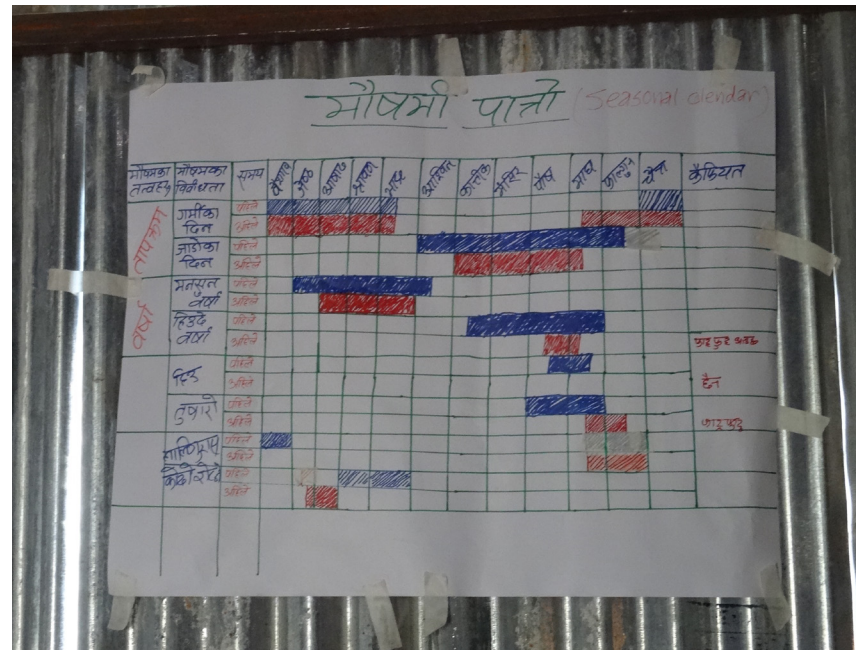 मौषमी पात्रो (Seasonal calendar)
मौषमका तत्वहरु मौषमका विविधता समय वैशाख जेष्ठ आषाढ श्रावण भाद्र आश्विन कार्तिक मंसिर पौष माघ फाल्गुन चैत्र कैफियत
तापक्रम
गर्मीका दिन पहिले
अहिले
जाडोका दिन पहिले
अहिले
वर्षा
मनसुन वर्षा पहिले
अहिले
हिउदे वर्षा पहिले
अहिले
हिउ पहिले
अहिले छैन
तुषारो पहिले
अहिले फाट्टफुट्ट
पहिले
अहिले
पहिले
अहिले